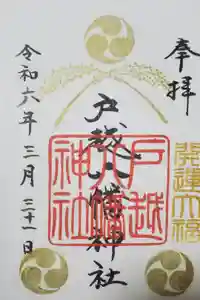 奉拝
戸越八幡神社
戸越八幡神社
開運大福
令和六年三月三十一日